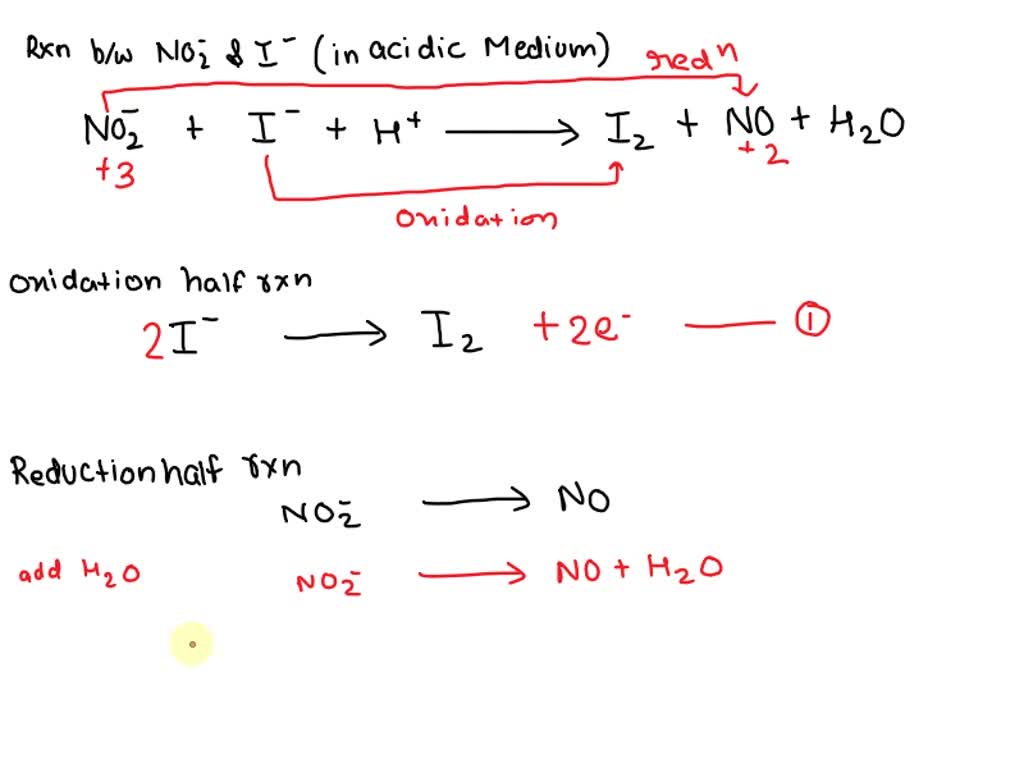 Rxn b/w NO₂⁻ & I⁻ (in acidic Medium)
redⁿ
NO₂⁻ + I⁻ + H⁺ ⟶ I₂ + NO + H₂O
+3 +2
onidation
onidation half rxn
2I⁻ ⟶ I₂ + 2e⁻ — ①
Reduction half rxn
NO₂⁻ ⟶ NO
add H₂O NO₂⁻ ⟶ NO + H₂O